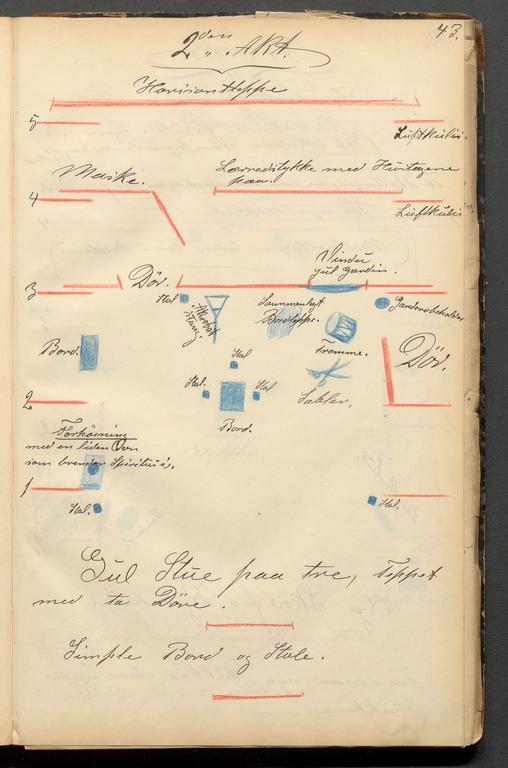 43.
2den AKT.
Horisontteppe
5
Luftkulis.
Maske.
Lærredstykke med Husitagene
paa.
4
Luftkulis
Vindu
gul gardin.
Dör.
3
Stol
Sammenlagt
Bordteppe.
Garderobeholder
Bord.
Tromme.
Dör.
Stol
Stol.
Stol
Sabler.
2
Bord.
Forhöining
med en liden Ovn
som brender Spiritus i.
1
Stol.
Stol.
Gul Stue paa tre, Teppet
med to Döre.
Simple Bord og Stole.